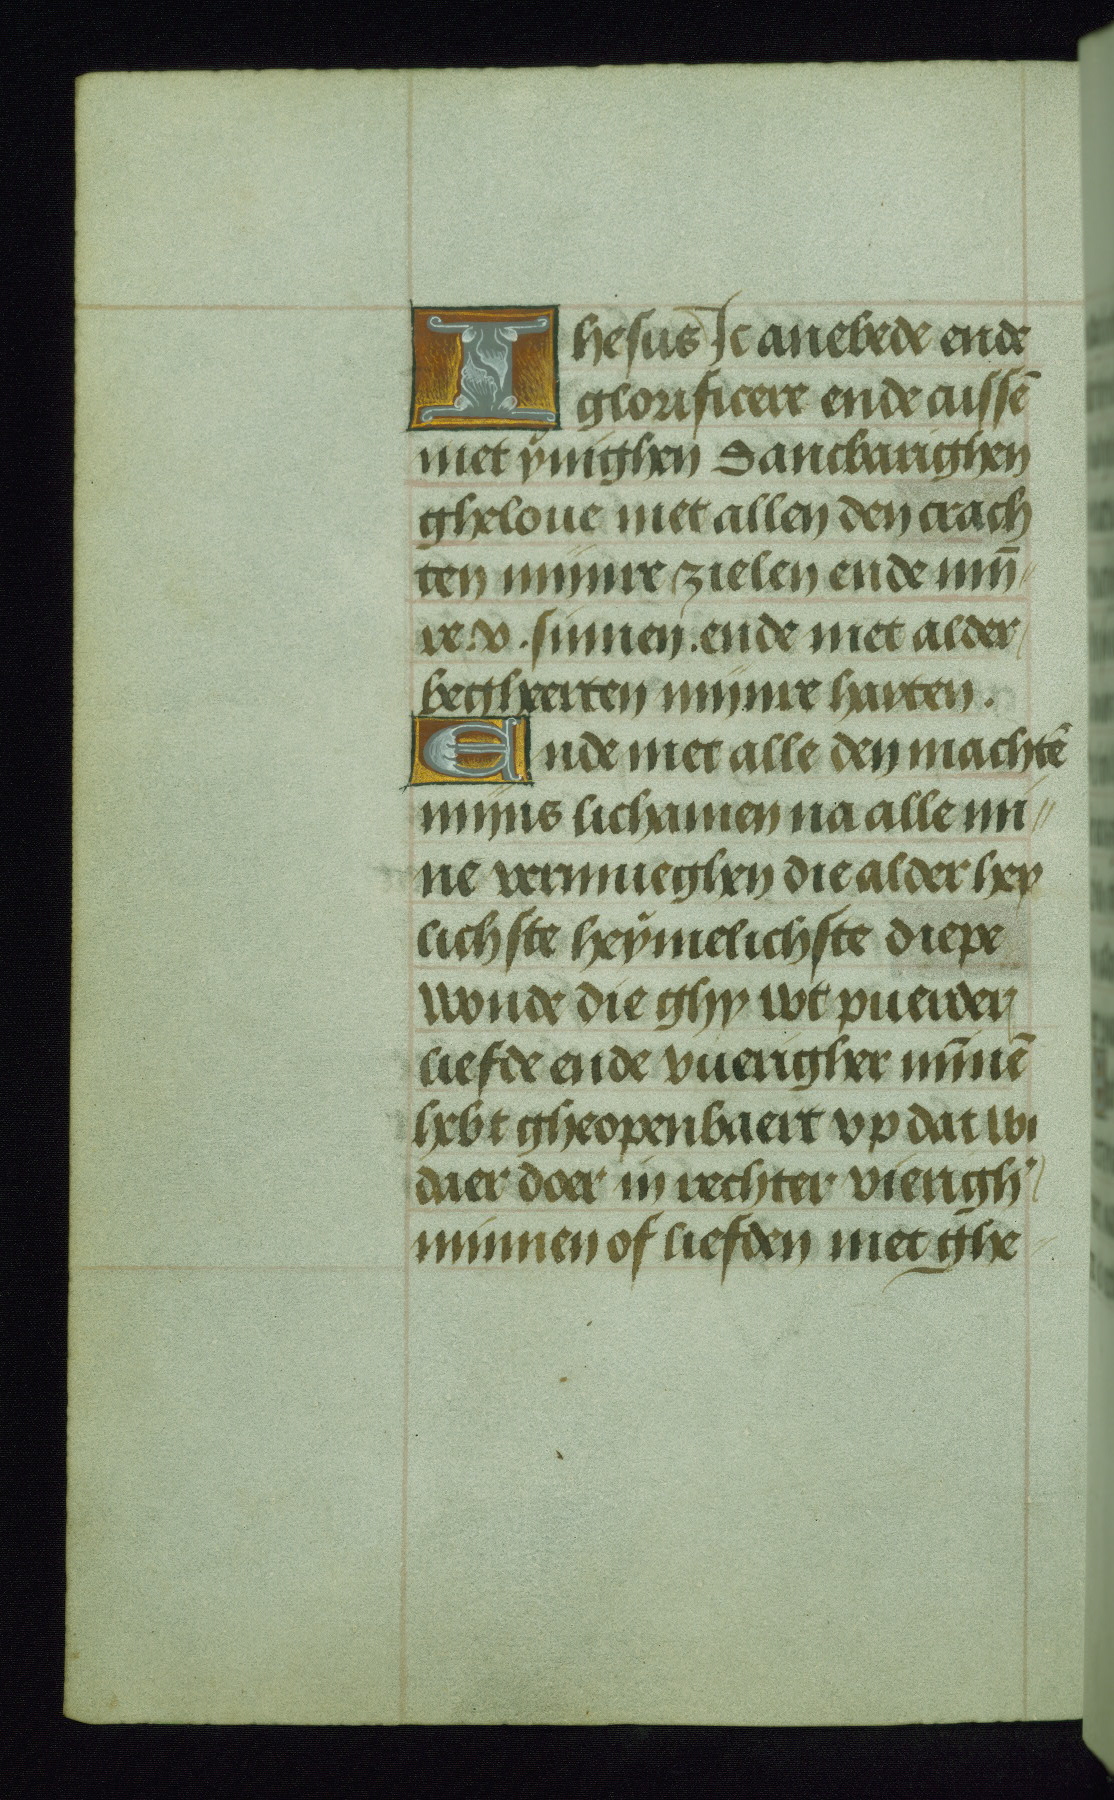 Ihesus Ic anebede ende
glorificere ende cussē
met ÿnighen dancbarighen
gheloue met allen den crach
ten mijnre zielen ende mijn̄
re .v. sinnen . ende met alder
begheerten mijnre harten .
Ende met alle den machtē
mijns lichamen na alle mi
ne vermueghen die alder hey
lichste heÿmelichste diepe
wonde die ghy wt puerder
liefde ende vuerigher mīnē
hebt gheopenbaert vp dat wi
daer doer in rechter vierigh'
minnen of liefden met ghe